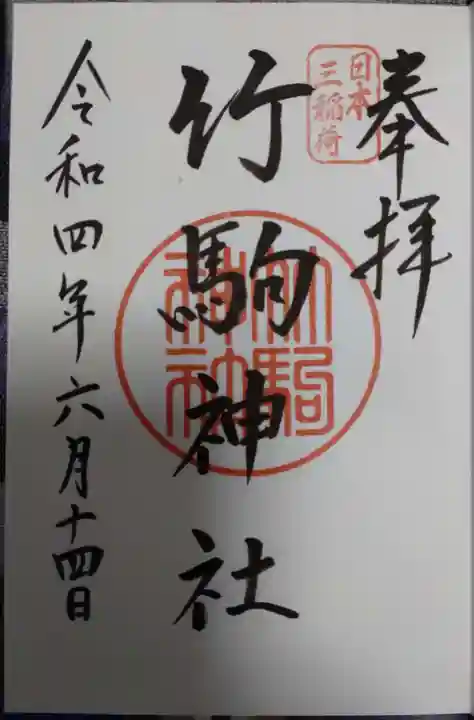 奉拝
日本
三稲荷
竹駒神社
竹駒
神社
令和四年六月十四日